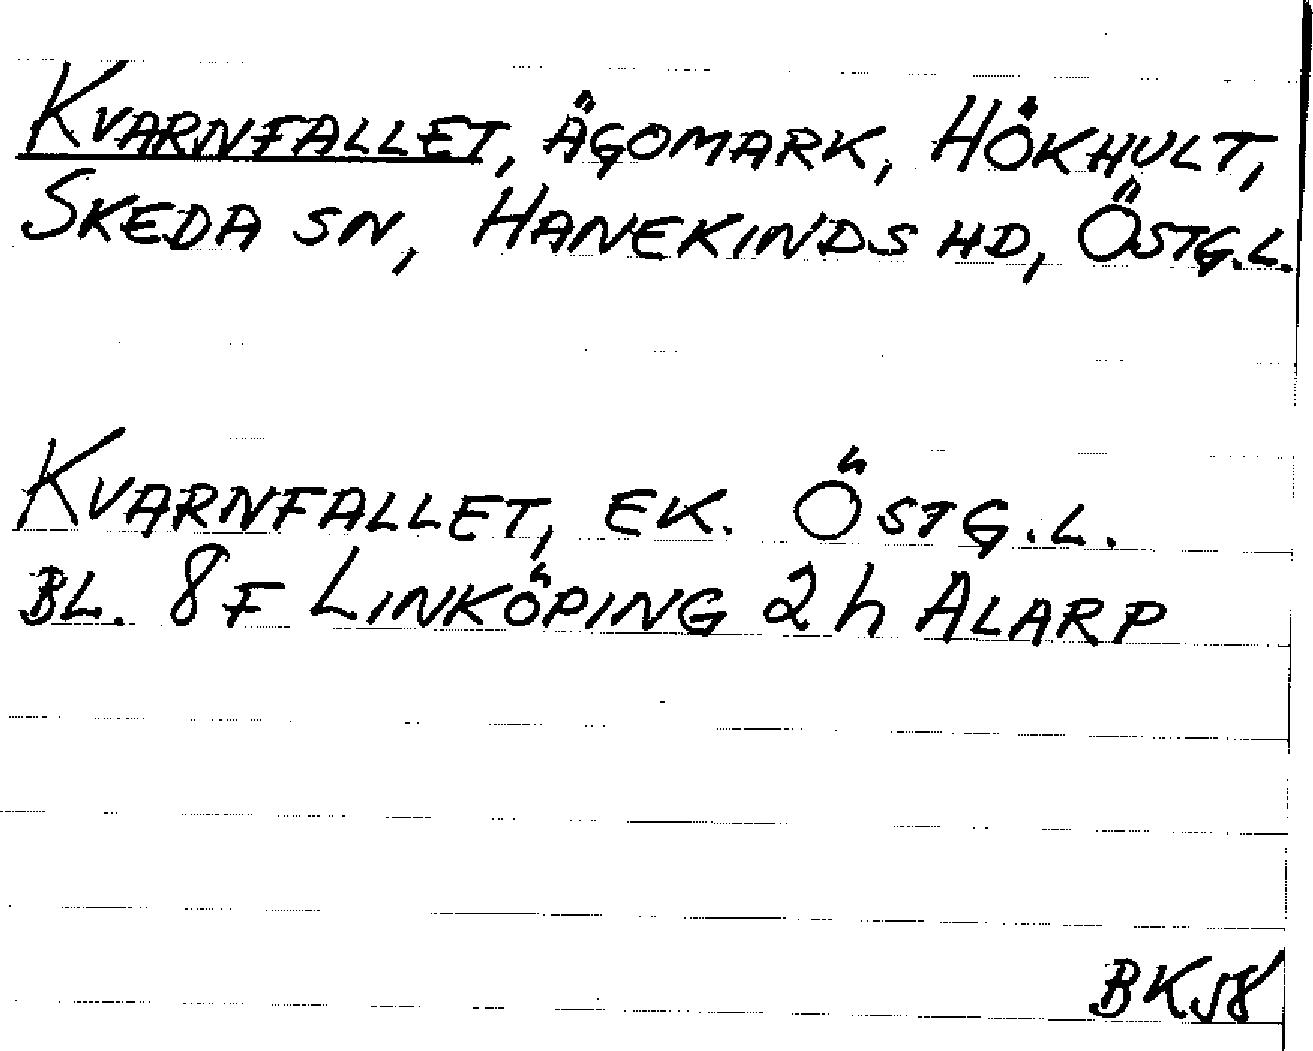 KVARNFALLET, ÄGOMARK, HÖKHULT,
SKEDA SN, HANEKINDS HD, ÖSTG.L.
KVARNFALLET, EK. ÖSTG.L.
BL. 8F LINKÖPING 2h ALARP
BK58